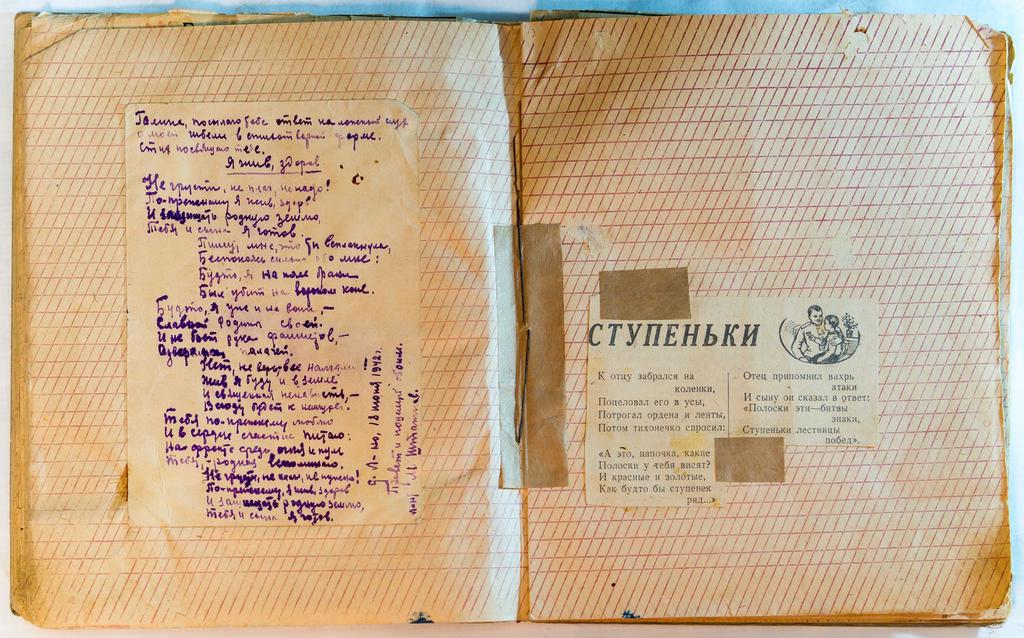 Галине, посылаю тебе ответ на ложный слух
о моей гибели в стихотворной форме.
Стих посвящаю тебе.
Я жив, здоров
Не грусти, не плачь, не надо!
По-прежнему я жив, здоров
И защищать родную землю,
Тебя и сына я готов.
Пишут мне, что ты всплакнула,
Беспокоясь сильно обо мне:
Будто, я на поле брани
Был убит на
Будто, я уже и не воин, –
Родины своей.
И не бьёт рука фашистов, –
палачей.
Нет,
Жив я буду и в земле
И священная ненависть, –
Всюду будет к
Тебя по-прежнему люблю
И в сердце счастие питаю:
На фронте среди огня и пуль
Тебя, родная вспоминаю.
Не грусти, не плачь, не нужно!
По-прежнему, я жив, здоров
И защищать родную землю,
Тебя и сына я готов.
18 июня 1942 г.
Привет и поцелуй обоим.
СТУПЕНЬКИ
К отцу забрался на
коленки,
Поцеловал его в усы,
Потрогал ордена и ленты,
Потом тихонечко спросил:
«А это, папочка, какие
Полоски у тебя висят?
И красные и золотые,
Как будто бы ступенек
ряд...»
Отец припомнил вихрь
атаки
И сыну он сказал в ответ:
«Полоски эти—битвы
знаки,
Ступеньки лестницы
побед».